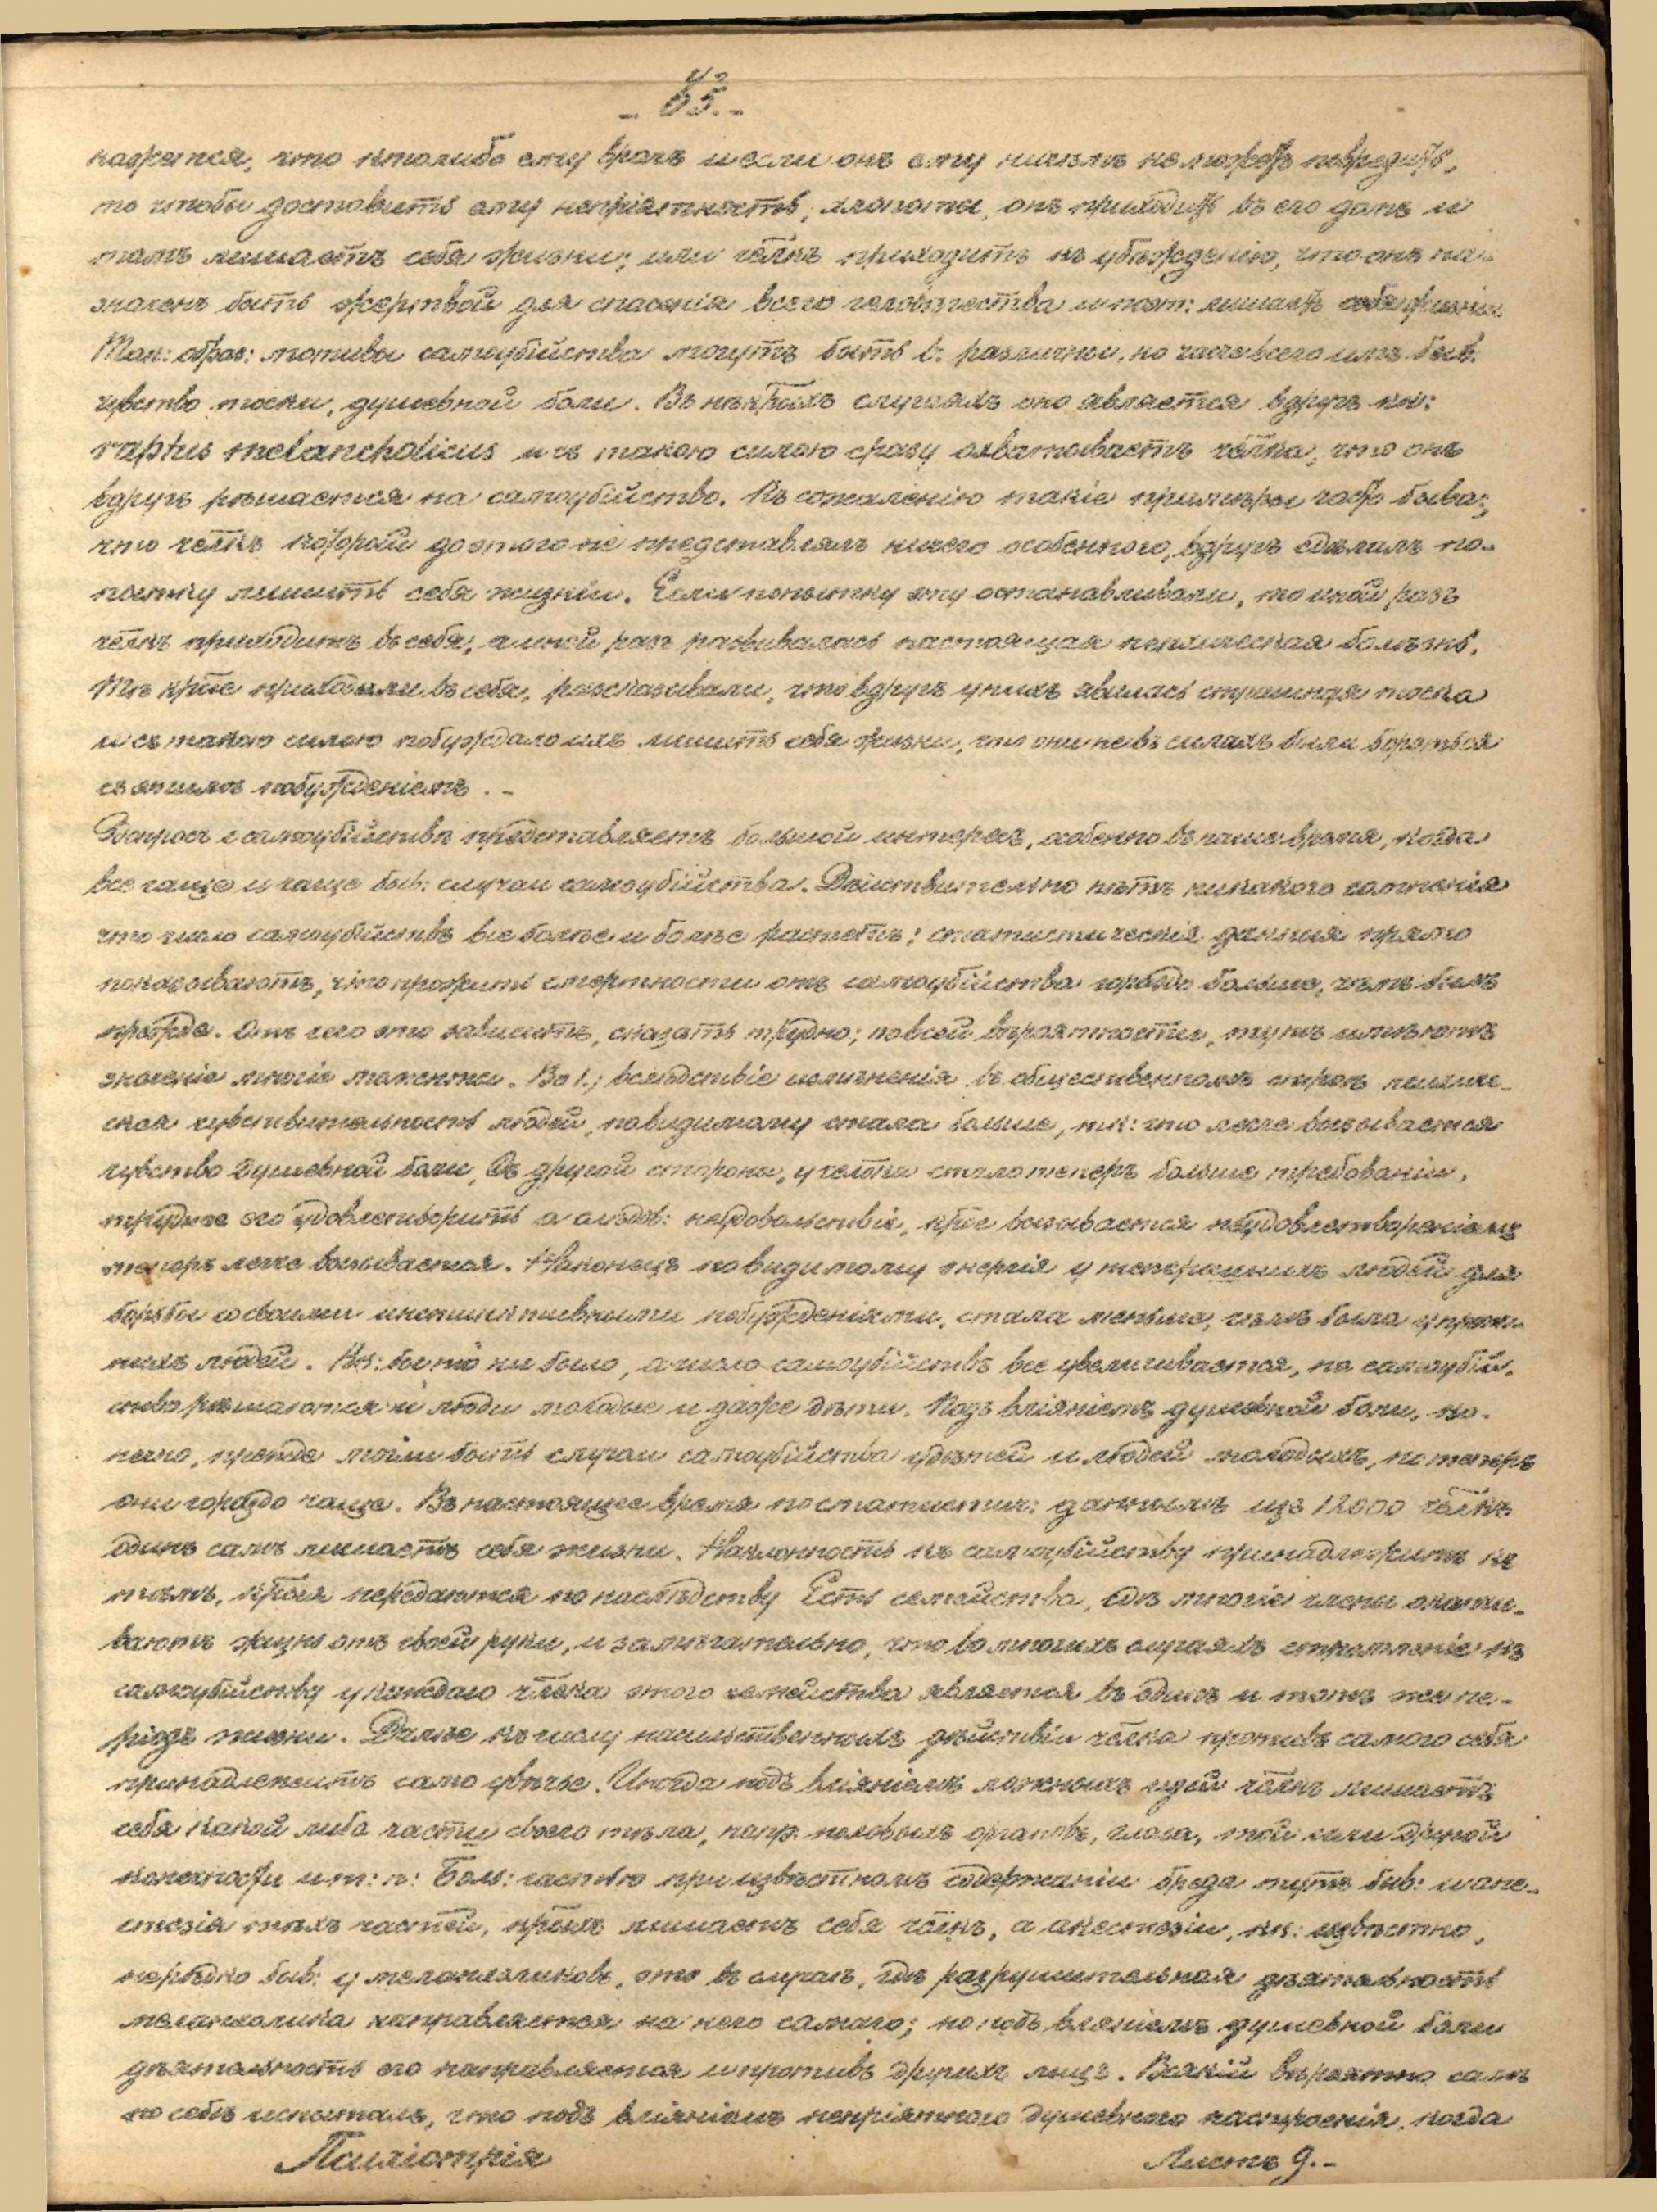 - 65. -
кажется, что ктолибо ему врагъ и если онъ ему ничѣмъ не можетъ повредить,
то чтобы доставить ему непріятность, хлопоты, онъ приходитъ въ его домъ и
тамъ лишаетъ себя жизни; или чел҃къ приходитъ къ убѣжденію, что онъ на-
значенъ быть жертвой для спасенія всего человѣчества и поэт: лишаетъ себя жизни.
Так: образ: мотивы самоубійства могутъ быть о. различны, но чаще всего имъ быв.
чувство тоски, душевной боли. Въ нѣкрыхъ случаяхъ оно является вдругъ кк:
raptus melancholicus и съ такою силою сразу охватываетъ чел҃ка, что онъ
вдругъ рѣшается на самоубійство. Къ сожалѣнію такіе примѣры часто быва:,
что чел҃къ который до этого не представлялъ ничего особеннаго, вдругъ сдѣлалъ по-
пытку лишить себя жизни. Если попытку эту останавливали, то иной разъ
чел҃къ приходитъ въ себя, а иной разъ развивалась настоящая психическая болѣзнь.
Тѣ крые приходили въ себя, разсказывали, что вдругъ у нихъ явилась страшная тоска
и съ такою силою побуждало ихъ лишить себя жизни, что они не въ силахъ были бороться
съ этимъ побужденіемъ. -
Вопросъ о самоубійствѣ представляетъ большой интересъ, особенно въ наше время, когда
все чаще и чаще быв: случаи самоубійства. Дѣйствительно нѣтъ никакого сомнѣнія
что число самоубійствъ все болѣе и болѣе растетъ; статистическія данныя прямо
показываютъ, что процентъ смертности отъ самоубійства гораздо больше, чѣмъ былъ
прежде. Отъ чего это зависитъ, сказать трудно; по всей вѣроятности, тутъ имѣютъ
значеніе многіе моменты. Во 1., вслѣдствіе измѣненія въ общественномъ строѣ психиче-
ская чувствительность людей, повидимому стала больше, тк: что легче вызывается
чувство душевной боли, Съ другой стороны, у чел҃ка стало теперь больше требованій,
труднѣе его удовлетворить а слѣдов: недовольствіе, крое вызывается неудовлетвореніемъ
теперь легче вызывается. Наконецъ повидимому энергія у теперешнихъ людей для
борьбы со своими инстинктивными побужденіями, стала меньше, чѣмъ была у преж-
нихъ людей. Кк: бы то ни было, а число самоубійствъ все увеличивается, на самоубій-
ство рѣшаются и люди молодые и даже дѣти. Подъ вліяніемъ душевной боли, ко-
нечно, прежде могли быть случаи самоубійства у дѣтей и людей молодыхъ, но теперь
они гораздо чаще. Въ настоящее время по статистич: даннымъ изъ 12000 чел҃къ
одинъ самъ лишаетъ себя жизни. Наклонность къ самоубійству принадлежитъ къ
тѣмъ, крыя передаются по наслѣдству Есть семейства, гдѣ многіе члены оканчи-
ваютъ жизнь отъ своей руки, и замѣчательно, что во многихъ случаяхъ стремленіе къ
самоубійству у каждаго чел҃ка этого семейства является въ одинъ и тотъ же пе-
ріодъ жизни. Далѣе къ числу насильственныхъ дѣйствій чел҃ка противъ самого себя
принадлежитъ само увѣчье. Иногда подъ вліяніемъ ложныхъ идей чел҃къ лишаетъ
себя какой либо части своего тѣла, напр. половыхъ органовъ, глаза, той или другой
конечности и т: п: Боль: частью при извѣстномъ содержаніи бреда тутъ быв: и ане-
стезія тѣхъ частей, крыхъ лишаетъ себя чел҃къ, а анестезіи, кк: извѣстно,
нерѣдко быв: у меланхоликовъ, это въ случаѣ, гдѣ разрушительная дѣятельность
меланхолика направляется на него самого; но подъ вліяніемъ душевной боли
дѣятельность его направляется и противъ другихъ лицъ. Всякій вѣроятно самъ
по себѣ испыталъ, что подъ вліяніемъ непріятного душевного настроенія, когда
Психіатрія
Листъ 9.-